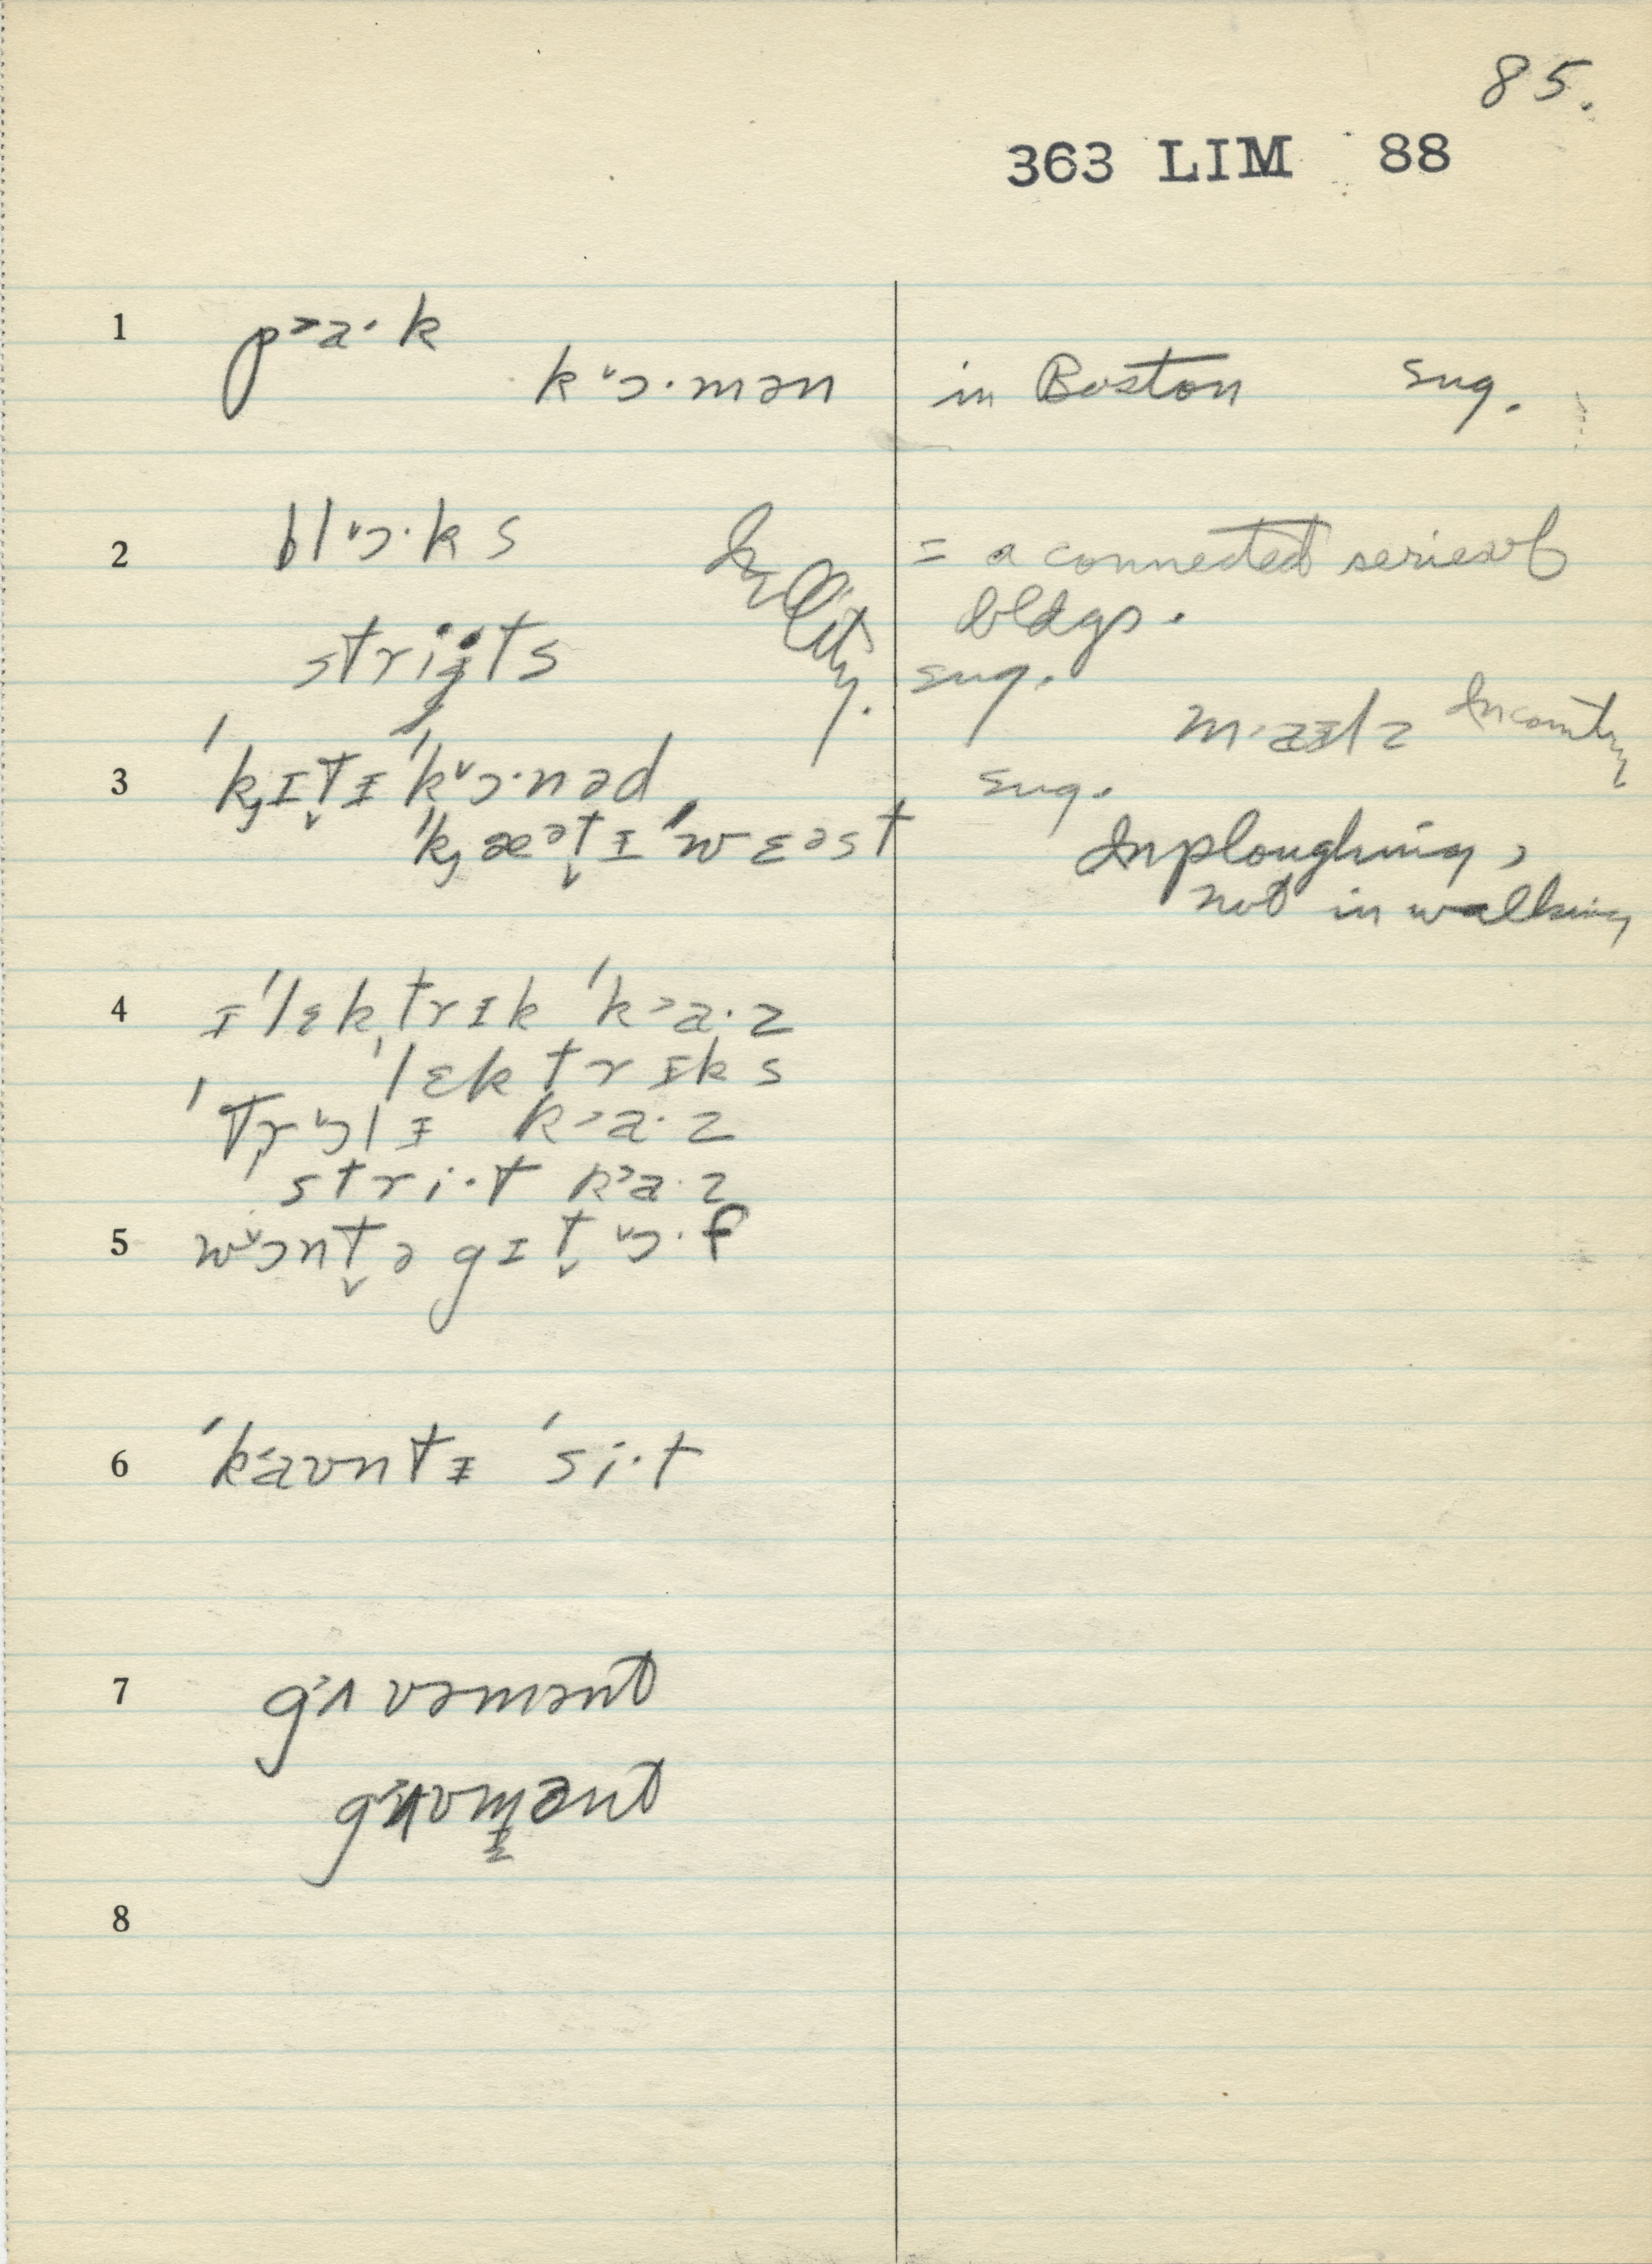 85.
363 LIM 88
1 p˃a·k
k˅ɔ·mən in Boston sug.
2 bl˅ɔ·ks = a connected series of
bldgs.
strijts In City. sug.
m·aɪlz In country
3 ˈkɪt̬ɪ ˈk˅ɔ·nəd sug.
ˈkæᵊt̬ɪ ˈwɛəst In ploughing,
not in walking
4 ɪˈlɛktrɪk ˈk˃a·z
ˈlɛktrɪks
ˈtr˅ɔlɪ k˃a·z
stri·t k˃a·z
5 w˅ɔnt̬ə gɪt̬ ˅ɔ·f
6 ˈk˂aʊntɪ ˈsi·t
7 g˃ʌvəmənt
g˃ʌvmənt
8